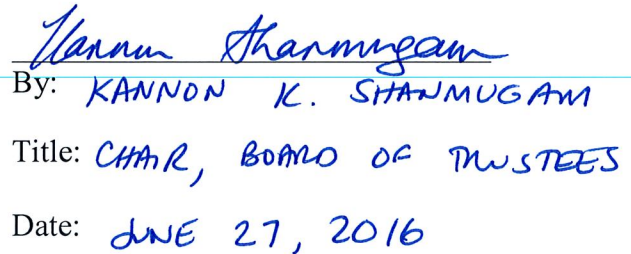 Kannon Shanmugam
By: KANNON K. SHANMUGAM
Title: CHAIR, BOARD OF TRUSTEES
Date: JUNE 27, 2016